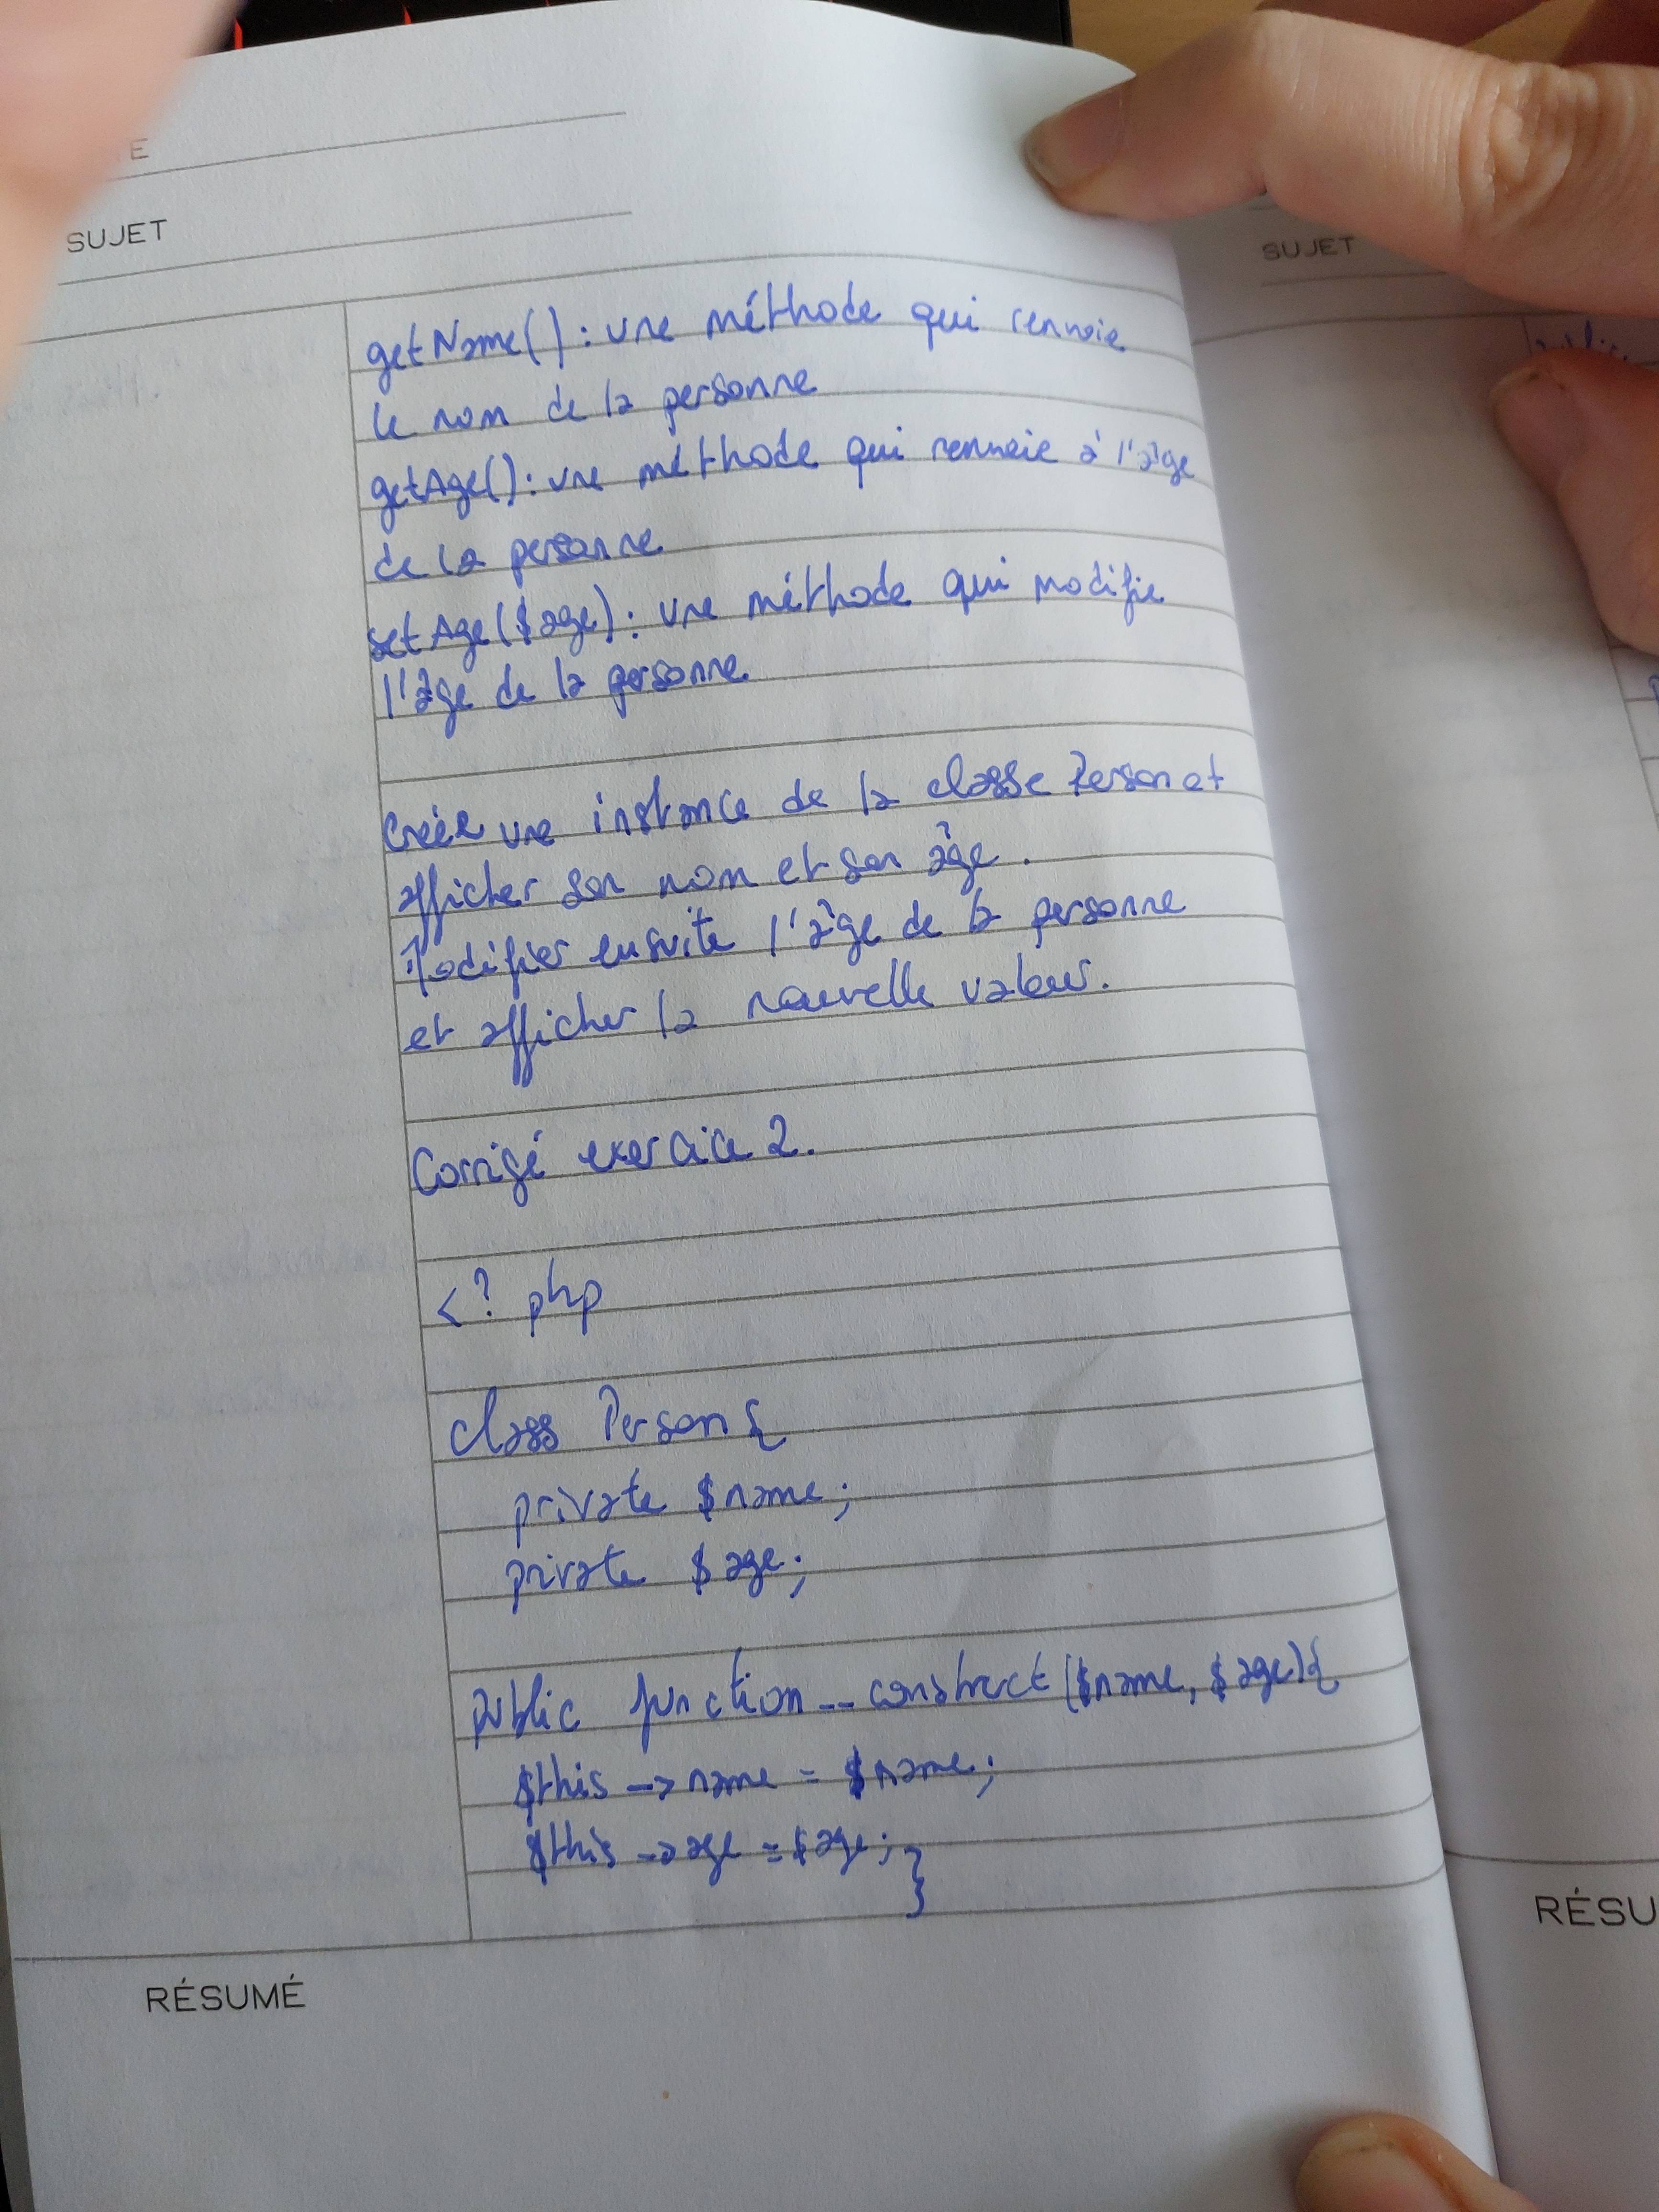 SUJET
getName() : une méthode qui renvoie
le nom de la personne
getAge() : une méthode qui renvoie à l'âge
de la personne
setAge($age) : une méthode qui modifie
l'âge de la personne
Créer une instance de la classe Person et
afficher son nom et son âge.
Modifier ensuite l'âge de la personne
et afficher la nouvelle valeur.
Corrigé exercice 2.
<? php
class Person {
private $name;
private $age;
public function __construct ($name, $age) {
$this -> name = $name;
$this -> age = $age; }
RÉSUMÉ
SUJET
RÉSU